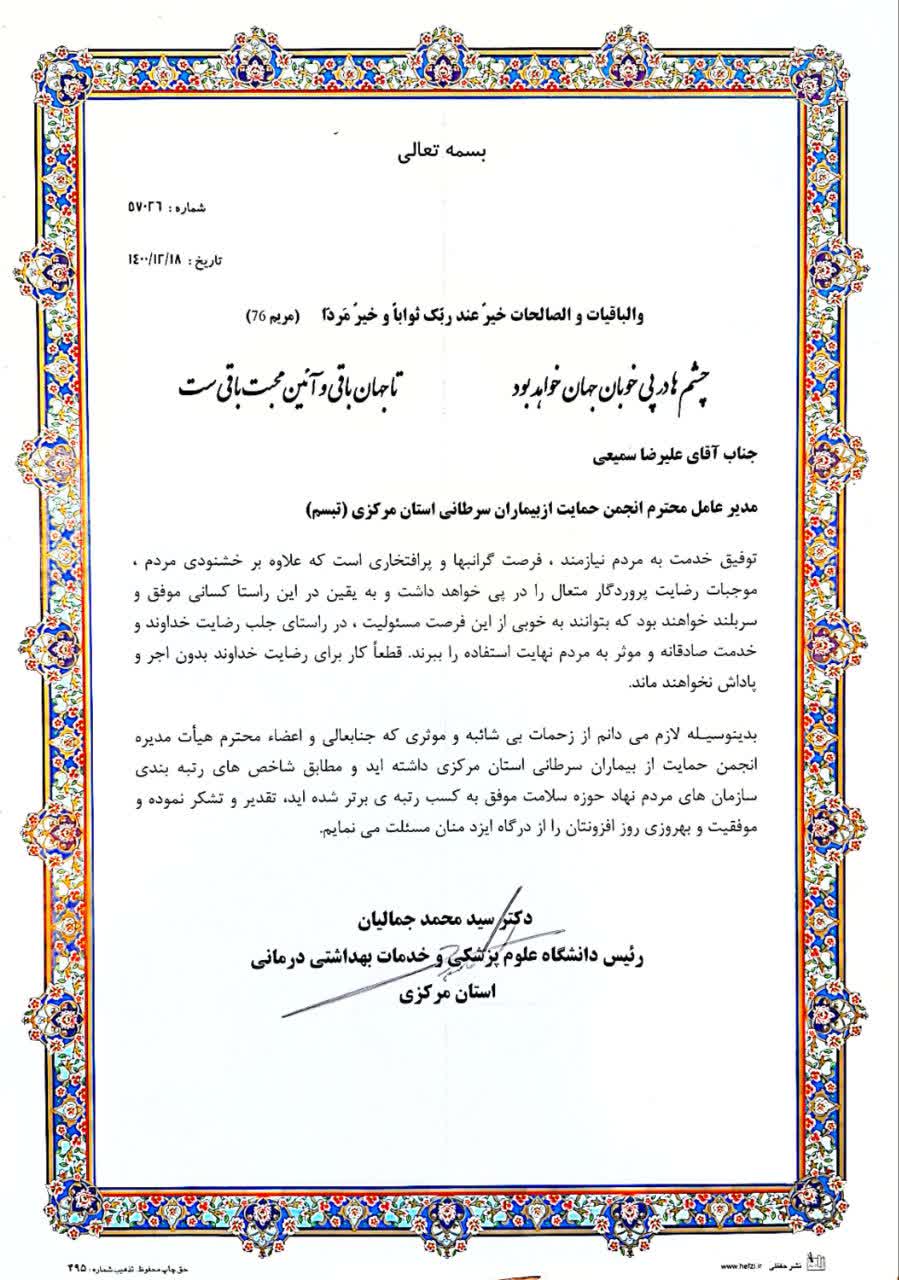 بسمه تعالی
شماره : ۵۷۰۲۶
تاریخ : ۱۴۰۰/۱۲/۱۸
والباقیات و الصالحات خیرٌ عند ربّک ثواباً و خیرٌ مَردّا (مریم 76)
چشم ها در پی خوبان جهان خواهد بود تا جهان باقی و آئین محبت باقی ست
جناب آقای علیرضا سمیعی
مدیر عامل محترم انجمن حمایت ازبیماران سرطانی استان مرکزی (تبسم)
توفیق خدمت به مردم نیازمند ، فرصت گرانبها و پرافتخاری است که علاوه بر خشنودی مردم ،
موجبات رضایت پروردگار متعال را در پی خواهد داشت و به یقین در این راستا کسانی موفق و
سربلند خواهند بود که بتوانند به خوبی از این فرصت مسئولیت ، در راستای جلب رضایت خداوند و
خدمت صادقانه و موثر به مردم نهایت استفاده را ببرند. قطعاً کار برای رضایت خداوند بدون اجر و
پاداش نخواهند ماند.
بدینوسیله لازم می دانم از زحمات بی شائبه و موثری که جنابعالی و اعضاء محترم هیأت مدیره
انجمن حمایت از بیماران سرطانی استان مرکزی داشته اید و مطابق شاخص های رتبه بندی
سازمان های مردم نهاد حوزه سلامت موفق به کسب رتبه ی برتر شده اید، تقدیر و تشکر نموده و
موفقیت و بهروزی روز افزونتان را از درگاه ایزد منان مسئلت می نمایم.
دکتر سید محمد جمالیان
رئیس دانشگاه علوم پزشکی و خدمات بهداشتی درمانی
استان مرکزی
نشر حفظی www.hefzi.ir
حق چاپ محفوظ. تذهیب شماره : ۴۹۵